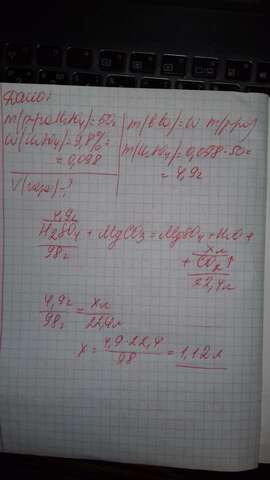 Дано:
m(р-ра H2SO4)=50г
W(H2SO4)=9,8%=
=0,098
V(газа)-?
m(в-ва)=w·m(р-ра)
m(H2SO4)=0,098·50=
=4,9г
4,9г
H2SO4 + MgCO3 = MgSO4 + H2O +
98г
xл
+ CO2↑
22,4л
4,9г = xл
98г 22,4л
x = 4,9·22,4 = 1,12л
98